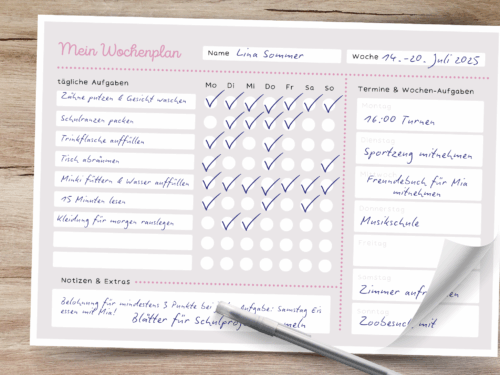 Mein Wochenplan
Name Lina Sommer
Woche 14.-20. Juli 2025
tägliche Aufgaben
Mo Di Mi Do Fr Sa So
Zähne putzen & Gesicht waschen
Schulranzen packen
Trinkflasche auffüllen
Tisch abräumen
Minki füttern & Wasser auffüllen
15 Minuten lesen
Kleidung für morgen rauslegen
Termine & Wochen-Aufgaben
16:00 Turnen
Sportzeug mitnehmen
Freundebuch für Mia
mitnehmen
Musikschule
Zimmer
Zoobesuch mit
Notizen & Extras
Belohnung für mindestens 3 Punkte bei Aufgabe: Samstag Eis
essen mit Mia!
Blätter für